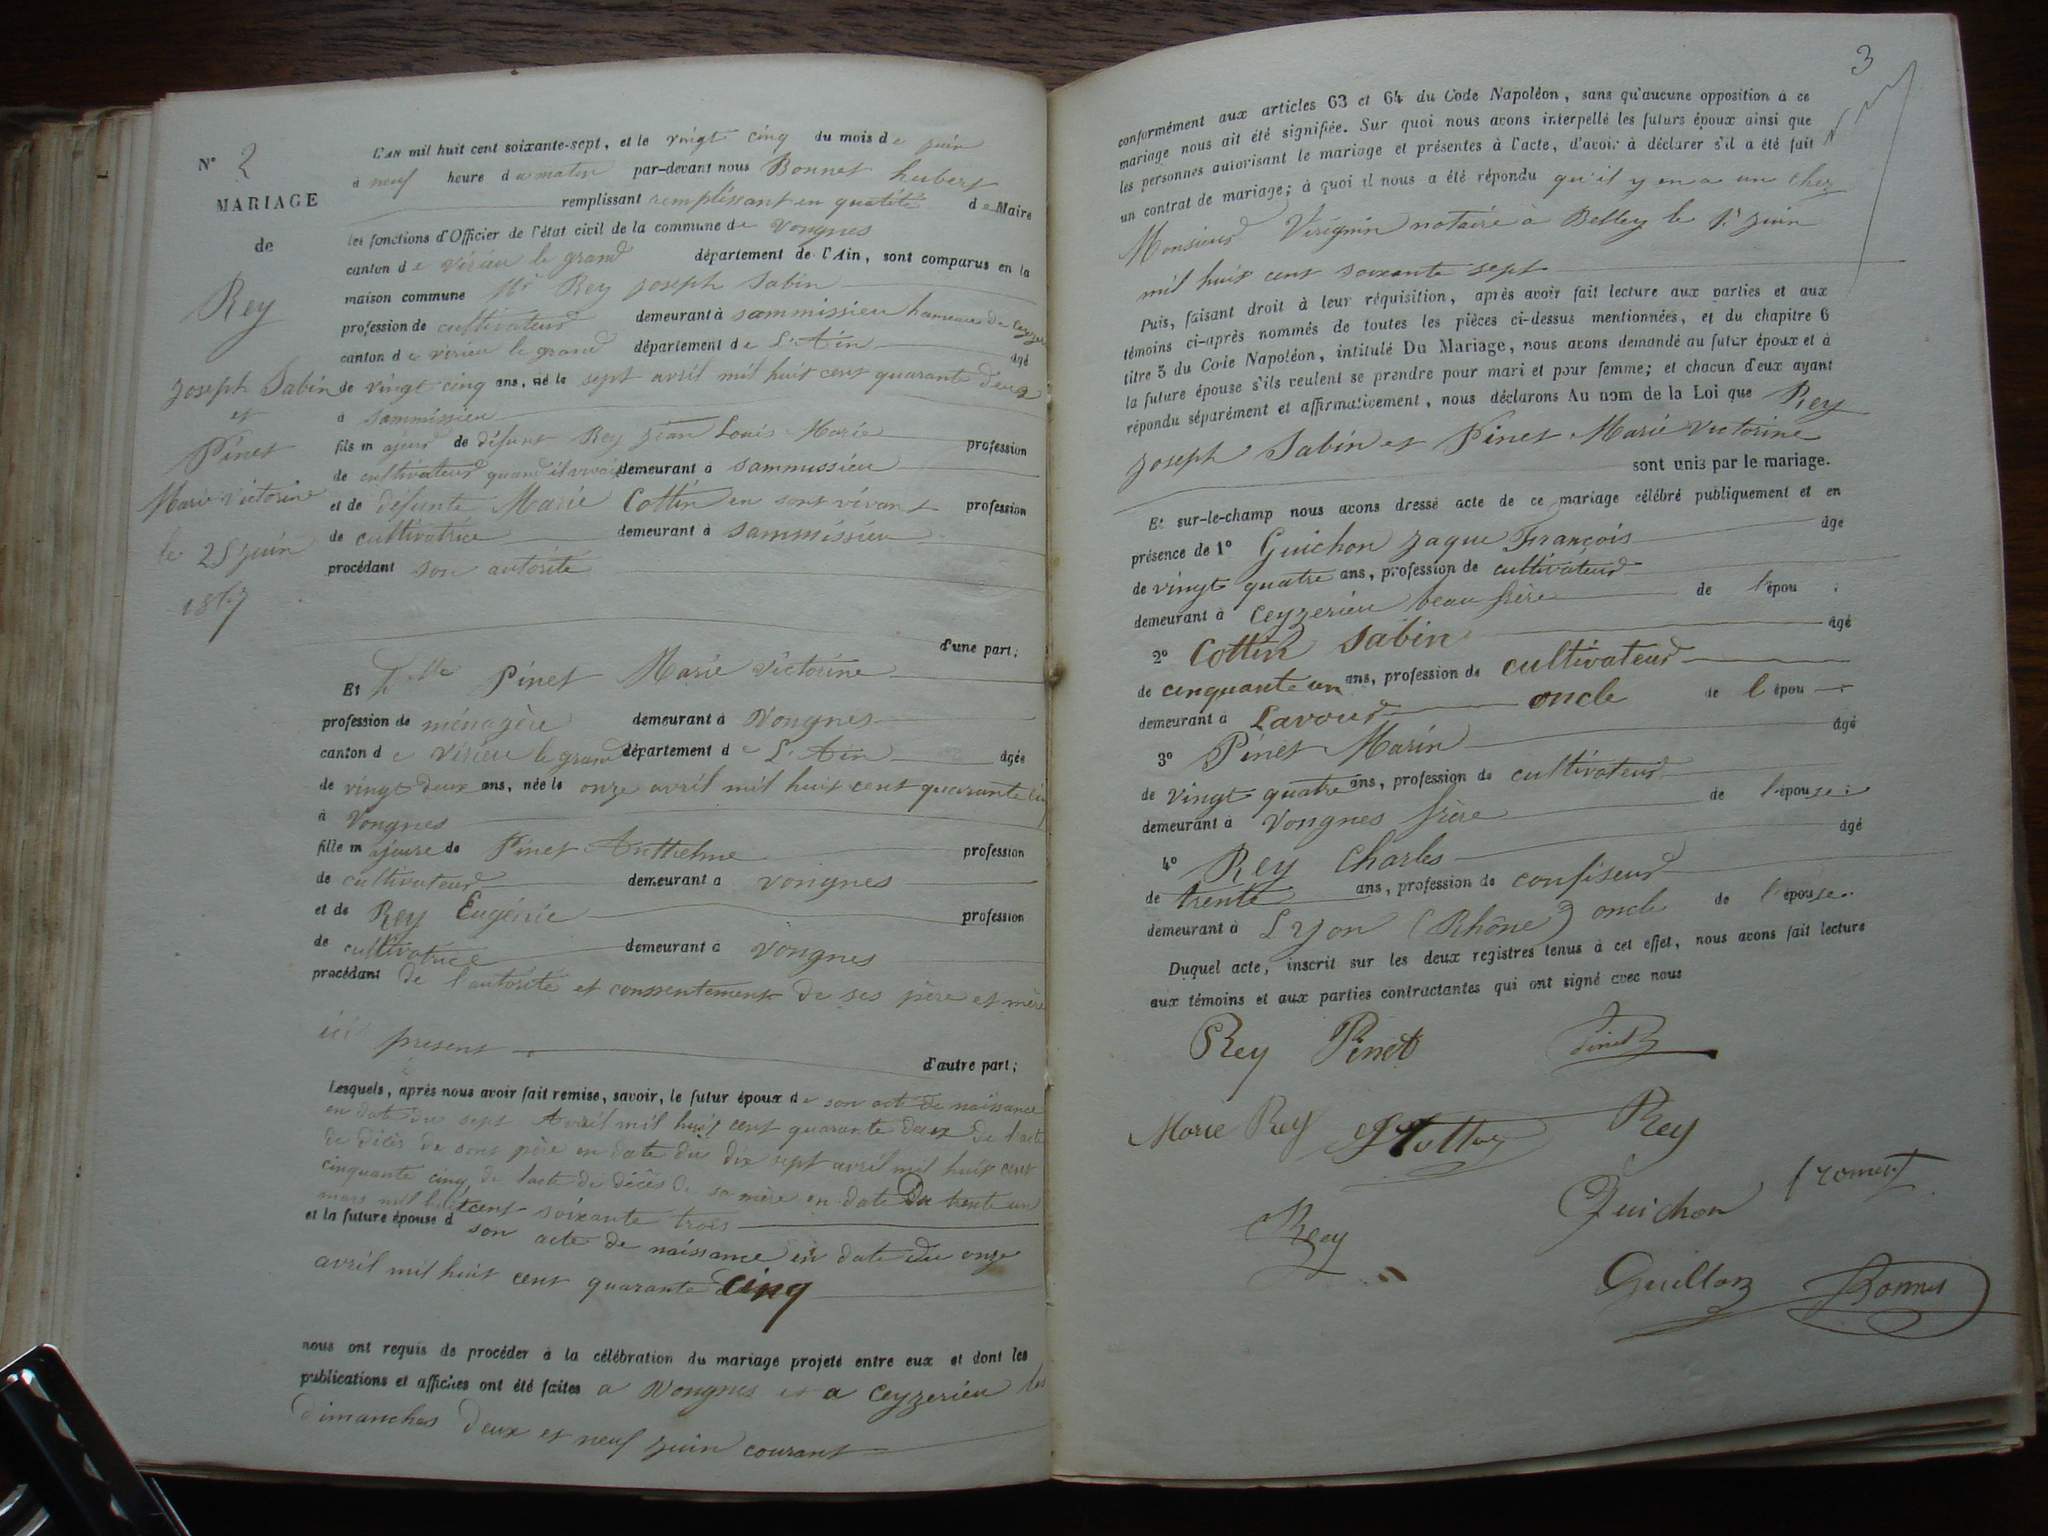 N° 2
MARIAGE
de
Rey
Joseph Sabin
et
Pinet
Marie Victorine
le 25 juin
1867
L'AN mil huit cent soixante-sept, et le vingt cinq du mois de juin
à neuf heure du matin par-devant nous Bonnet hubert
remplissant remplissant en qualité de Maire
les fonctions d'Officier de l'état civil de la commune de Vongnes
canton de virieu le grand département de l'Ain, sont comparus en la
maison commune Mr Rey joseph Sabin
profession de cultivateur demeurant à sammissieu hameau de Ceyzerieu
canton de virieu le grand département de L'Ain âgé
de vingt cinq ans, né le sept avril mil huit cent quarante deux
à sammissieu
fils majeur de défunt Rey jean Louis Marie profession
de cultivateur quand il vivait demeurant à sammissieu
et de défunte Marie Cottin en sont vivant profession
de cultivatrice demeurant à sammissieu
procédant son autorité
d'une part;
Et Dlle Pinet Marie victorine
profession de ménagère demeurant à Vongnes
canton de Virieu le grand département de L'Ain âgée
de vingt deux ans, née le onze avril mil huit cent quarante cinq
à Vongnes
fille majeure de Pinet Anthelme profession
de cultivateur demeurant à vongnes
et de Rey Eugénie profession
de cultivatrice demeurant à vongnes
procédant de l'autorité et consentement de ses père et mère
ici present
d'autre part;
Lesquels, après nous avoir fait remise, savoir, le futur époux de son acte de naissance
en dat du sept Avril mil huit cent quarante deux de l'acte
de décès de sont père en date du dix sept avril mil huit cent
cinquante cinq de l'acte de décès de sa mère en date Du trente un
mars mil huit cent soixante trois
et la future épouse d son acte de naissance en date du onze
avril mil huit cent quarante cinq
nous ont requis de procéder à la célébration du mariage projeté entre eux et dont les
publications et affiches ont été faites a Vongnes et a Ceyzerieu les
dimanches deux et neuf juin courant
3
conformément aux articles 63 et 64 du Code Napoléon, sans qu'aucune opposition à ce
mariage nous ait été signifiée. Sur quoi nous avons interpellé les futurs époux ainsi que
les personnes autorisant le mariage et présentes à l'acte, d'avoir à déclarer s'il a été fait
un contrat de mariage; à quoi il nous a été répondu qu'il y en a un chez
Monsieur Vérignin notaire à Belley le 1r juin
mil huit cent soixante sept
Puis, faisant droit à leur réquisition, après avoir fait lecture aux parties et aux
témoins ci-après nommés de toutes les pièces ci-dessus mentionnées, et du chapitre 6
titre 5 du Code Napoléon, intitulé Du Mariage, nous avons demandé au futur époux et à
la future épouse s'ils veulent se prendre pour mari et pour femme; et chacun d'eux ayant
répondu séparément et affirmativement, nous déclarons Au nom de la Loi que Rey
Joseph Sabin et Pinet Marie victorine
sont unis par le mariage.
Et sur-le-champ nous avons dressé acte de ce mariage célébré publiquement et en
présence de 1° Guichon jaque François âgé
de vingt quatre ans, profession de cultivateur
demeurant à Ceyzerieu beau frère de l'épou :
2° Cottin Sabin âgé
de cinquante un ans, profession de cultivateur
demeurant à Lavour oncle de l'épou
3° Pinet Marin âgé
de vingt quatre ans, profession de cultivateur
demeurant à Vongnes frère de l'épouse:
4° Rey Charles âgé
de trente ans, profession de confiseur
demeurant à Lyon (Rhône) oncle de l'épouse.
Duquel acte, inscrit sur les deux registres tenus à cet effet, nous avons fait lecture
aux témoins et aux parties contractantes qui ont signé avec nous
Rey Pinet Pinet
Marie Rey Rey
Rey Guichon
Guillon Bonnet